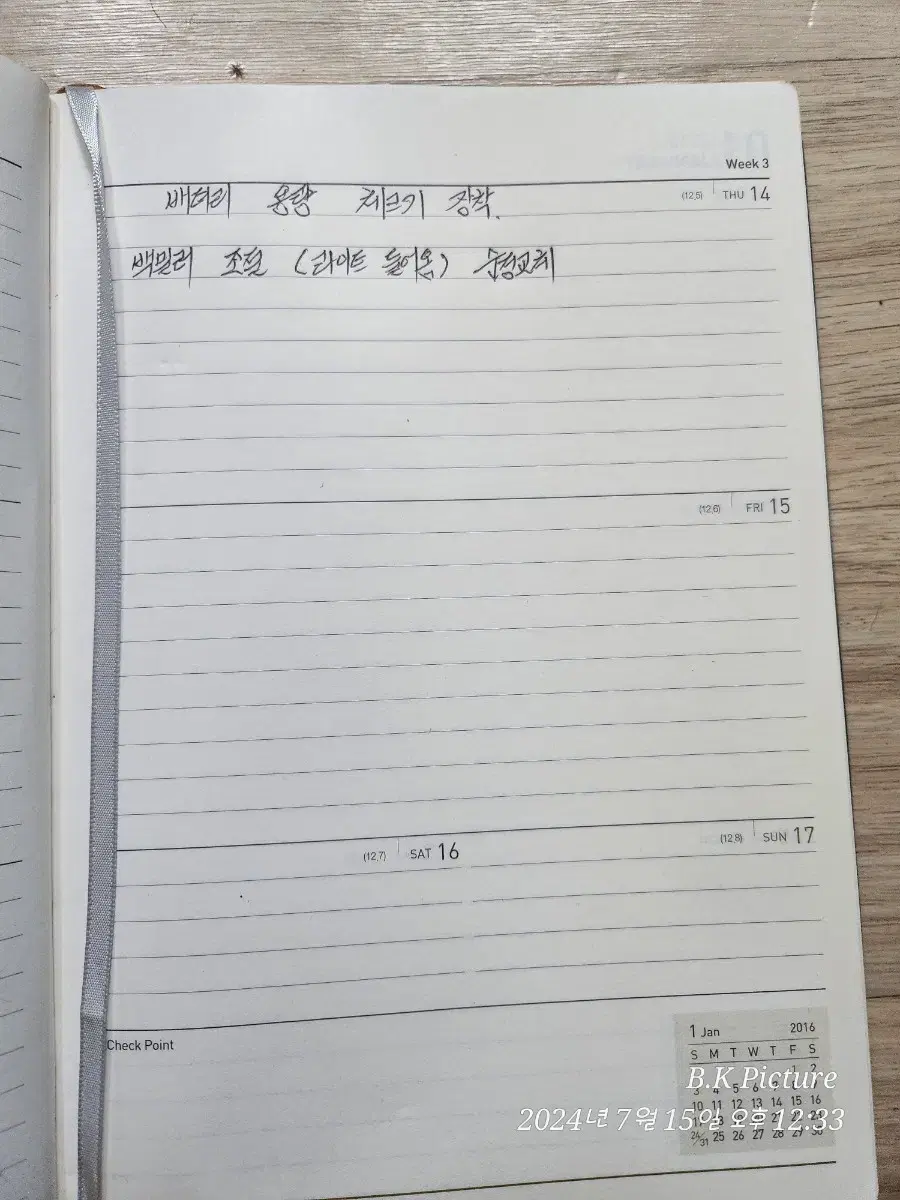 Week 3
(12.5) THU 14
배터리 용량 체크기 장착.
백밀러 조절 (라이트 들어옴) 수정교체
(12.6) FRI 15
(12.7) SAT 16
(12.8) SUN 17
Check Point
1 Jan 2016
S M T W T F S
1 2
3 4 5 6 7
10 11 12 13 14 15 16
25 26 27 28 29 30
B.K Picture
2024년 7월 15일 오후 12:33